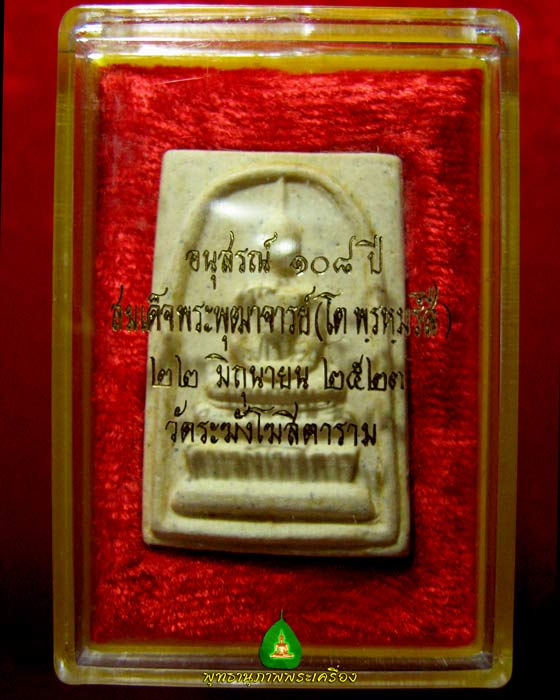 อนุสรณ์ ๑๐๘ ปี
สมเด็จพระพุฒาจารย์(โต พฺรหฺมรํสี)
๒๒ มิถุนายน ๒๕๒๓
วัดระฆังโฆสิตาราม
พุทธานุภาพพระเครื่อง